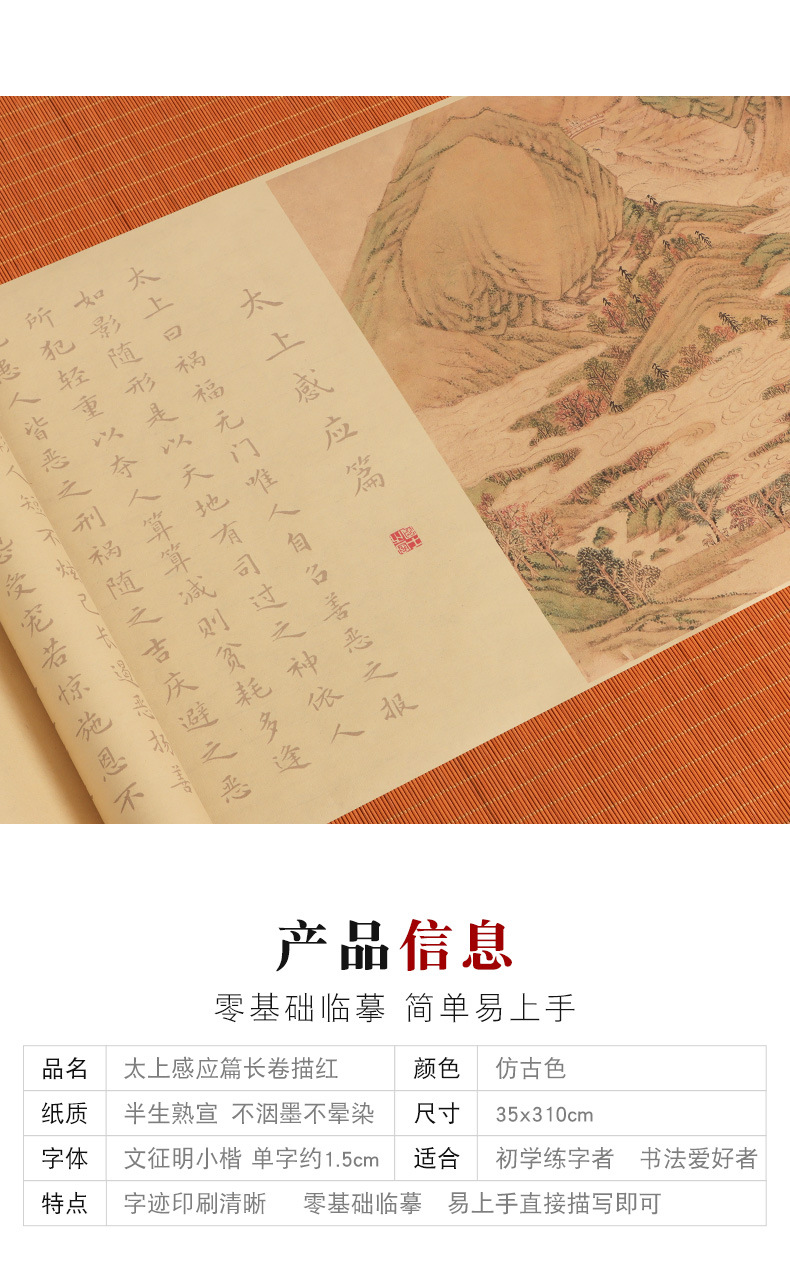 太上感应篇
太上曰祸福无门唯人自召善恶之报
如影随形是以天地有司过之神依人
所犯轻重以夺人算算减则贫耗多逢
患人皆恶之刑祸随之吉庆避之恶
人短不炫己长遏恶扬善
受宠若惊施恩不
产品信息
零基础临摹 简单易上手
品名 太上感应篇长卷描红 颜色 仿古色
纸质 半生熟宣 不洇墨不晕染 尺寸 35x310cm
字体 文征明小楷 单字约1.5cm 适合 初学练字者 书法爱好者
特点 字迹印刷清晰 零基础临摹 易上手直接描写即可